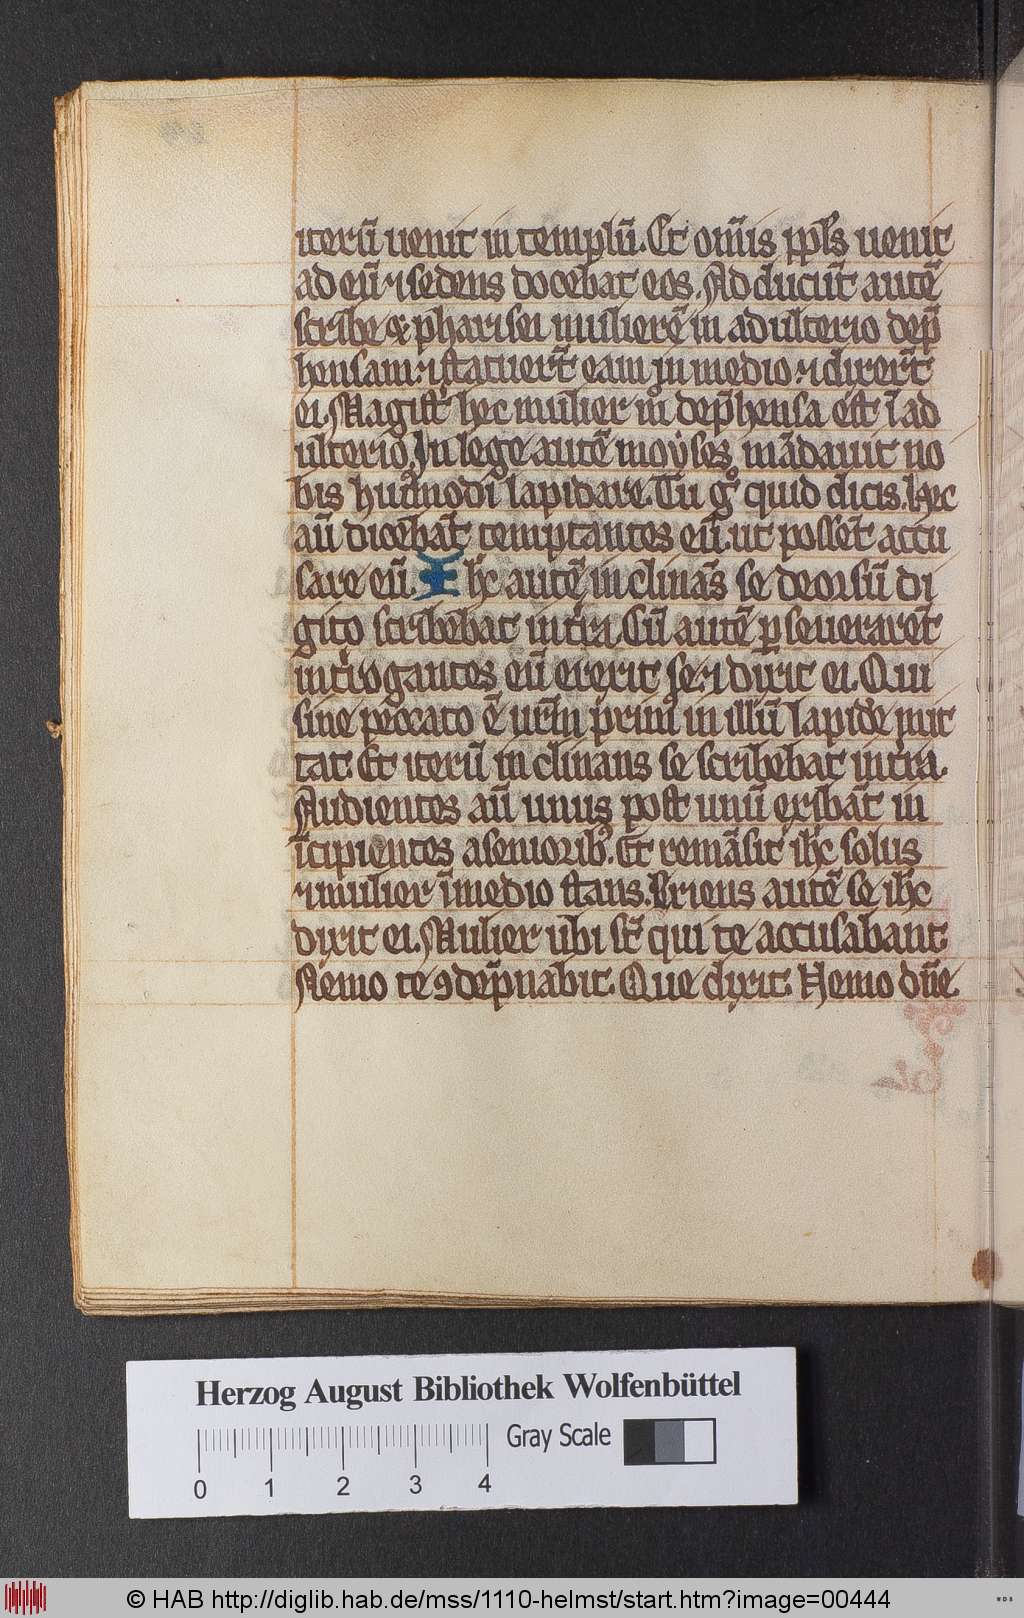 iterū uenit in templū. Et om̄is pp̄ls uenit
ad eū ⁊ sedens docebat eos. Adducūt autē
scribe & pharisei mulierē in adulterio dep̄
hensam: ⁊ statuer̄t eam in medio: ⁊ dixer̄t
ei. Magist̄ hec mulier m̊ dep̄hensa est ī ad
ulterio. In lege autē moyses mādauit no
bis huiꝰmodi lapidare. Tu gͦ quid dicis. Hec
aū dicebāt temptantes eū. ut possēt accu
sare eū. Ihc autē inclinās se deorsū di
gito scribebat in t̄ra. Cū autē ꝑseuerarēt
int̄rogantes eū erexit se. ⁊ dixit ei. Qui
sine peccato ē ur̄m primꝰ in illū lapidē mit
tat. Et iterū inclinans se scribebat in t̄ra.
Audientes aū unus post unū exibāt in
īcipientes a senioribꝰ. Et remāsit ihc solus
⁊ mulier ī medio stans. Eriens autē se ihc
dixit ei. Mulier ubi st̄ qui te accusabant
Nemo te ꝯdēpnabit. Que dixit. Nemo dn̄e
Herzog August Bibliothek Wolfenbüttel
0 1 2 3 4 Gray Scale
© HAB http://diglib.hab.de/mss/1110-helmst/start.htm?image=00444